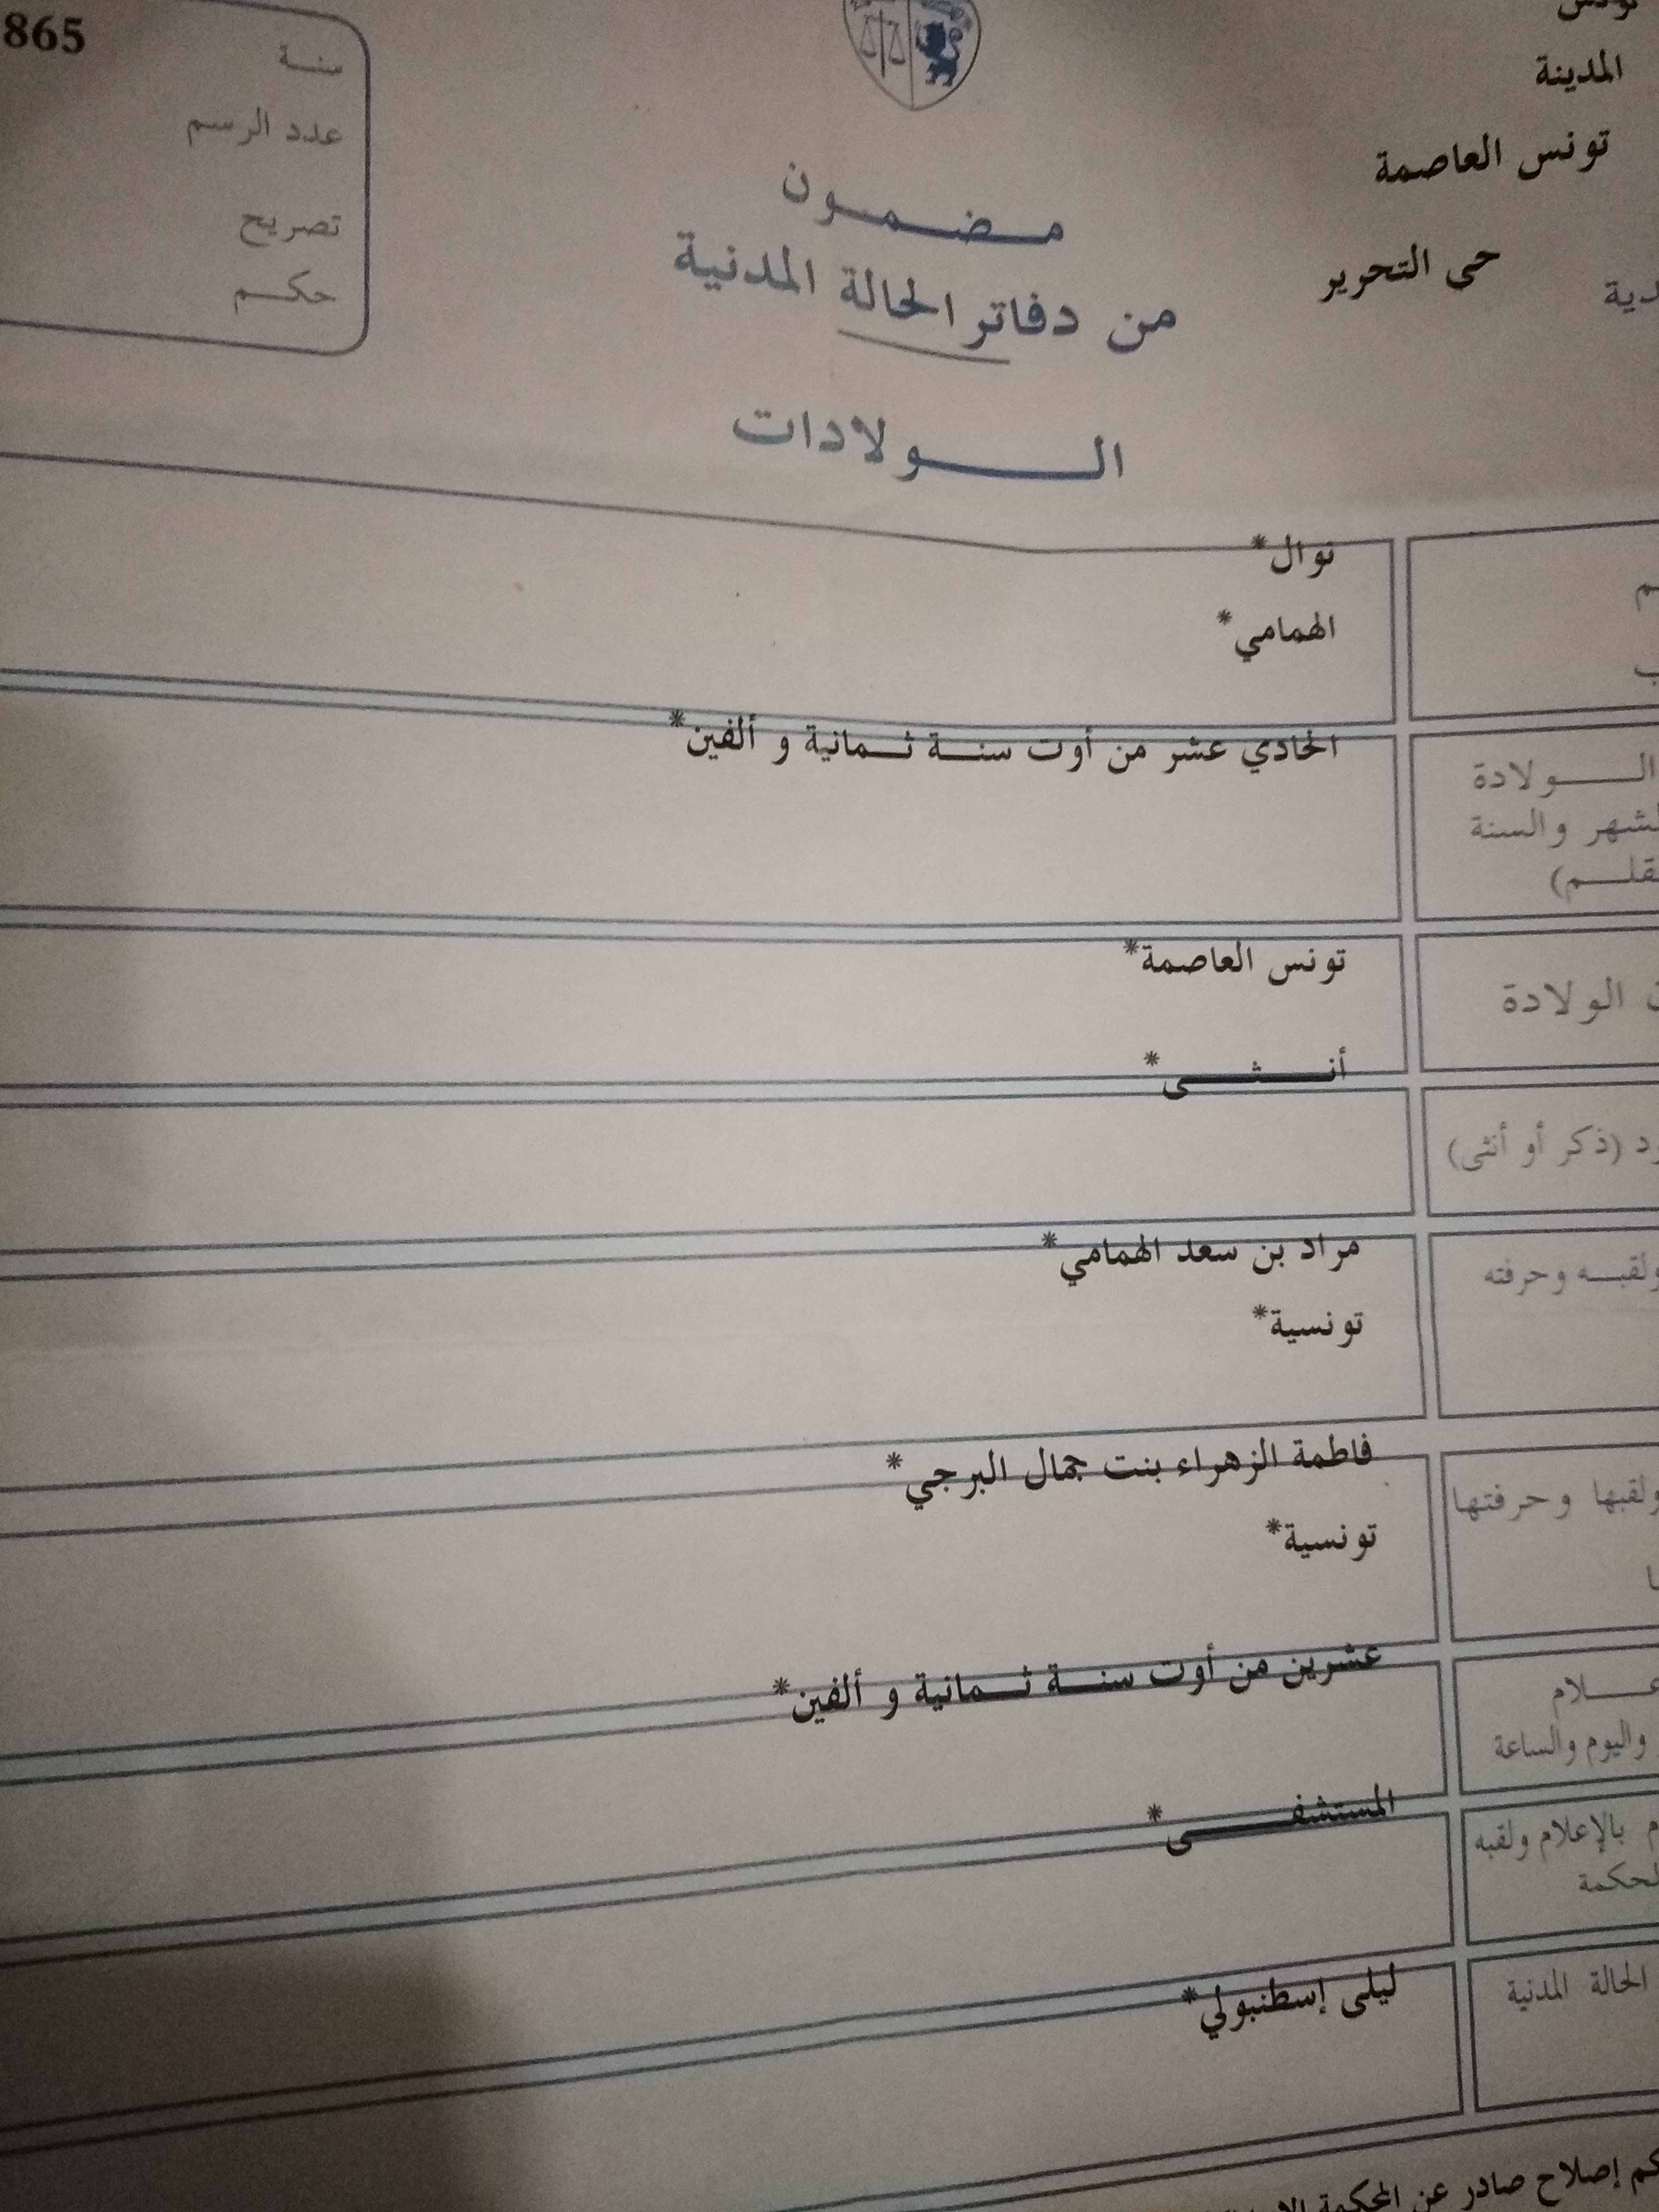 تونس
المدينة
تونس العاصمة
حي التحرير
865
سنة
عدد الرسم
تصريح
حكم
مضمون
من دفاتر الحالة المدنية
الولادات
نوال*
الهمامي*
الولادة
والسنة
الحادي عشر من أوت سنة ثمانية و ألفين*
الولادة
تونس العاصمة*
أنثى*
(ذكر أو أنثى)
وحرفته
مراد بن سعد الهمامي*
تونسية*
ولقبها وحرفتها
فاطمة الزهراء بنت جمال البرجي*
تونسية*
عشرين من أوت سنة ثمانية و ألفين*
واليوم والساعة
بالإعلام ولقبه
المستشفى*
الحالة المدنية
ليلى إسطنبولي*
إصلاح صادر عن المحكمة